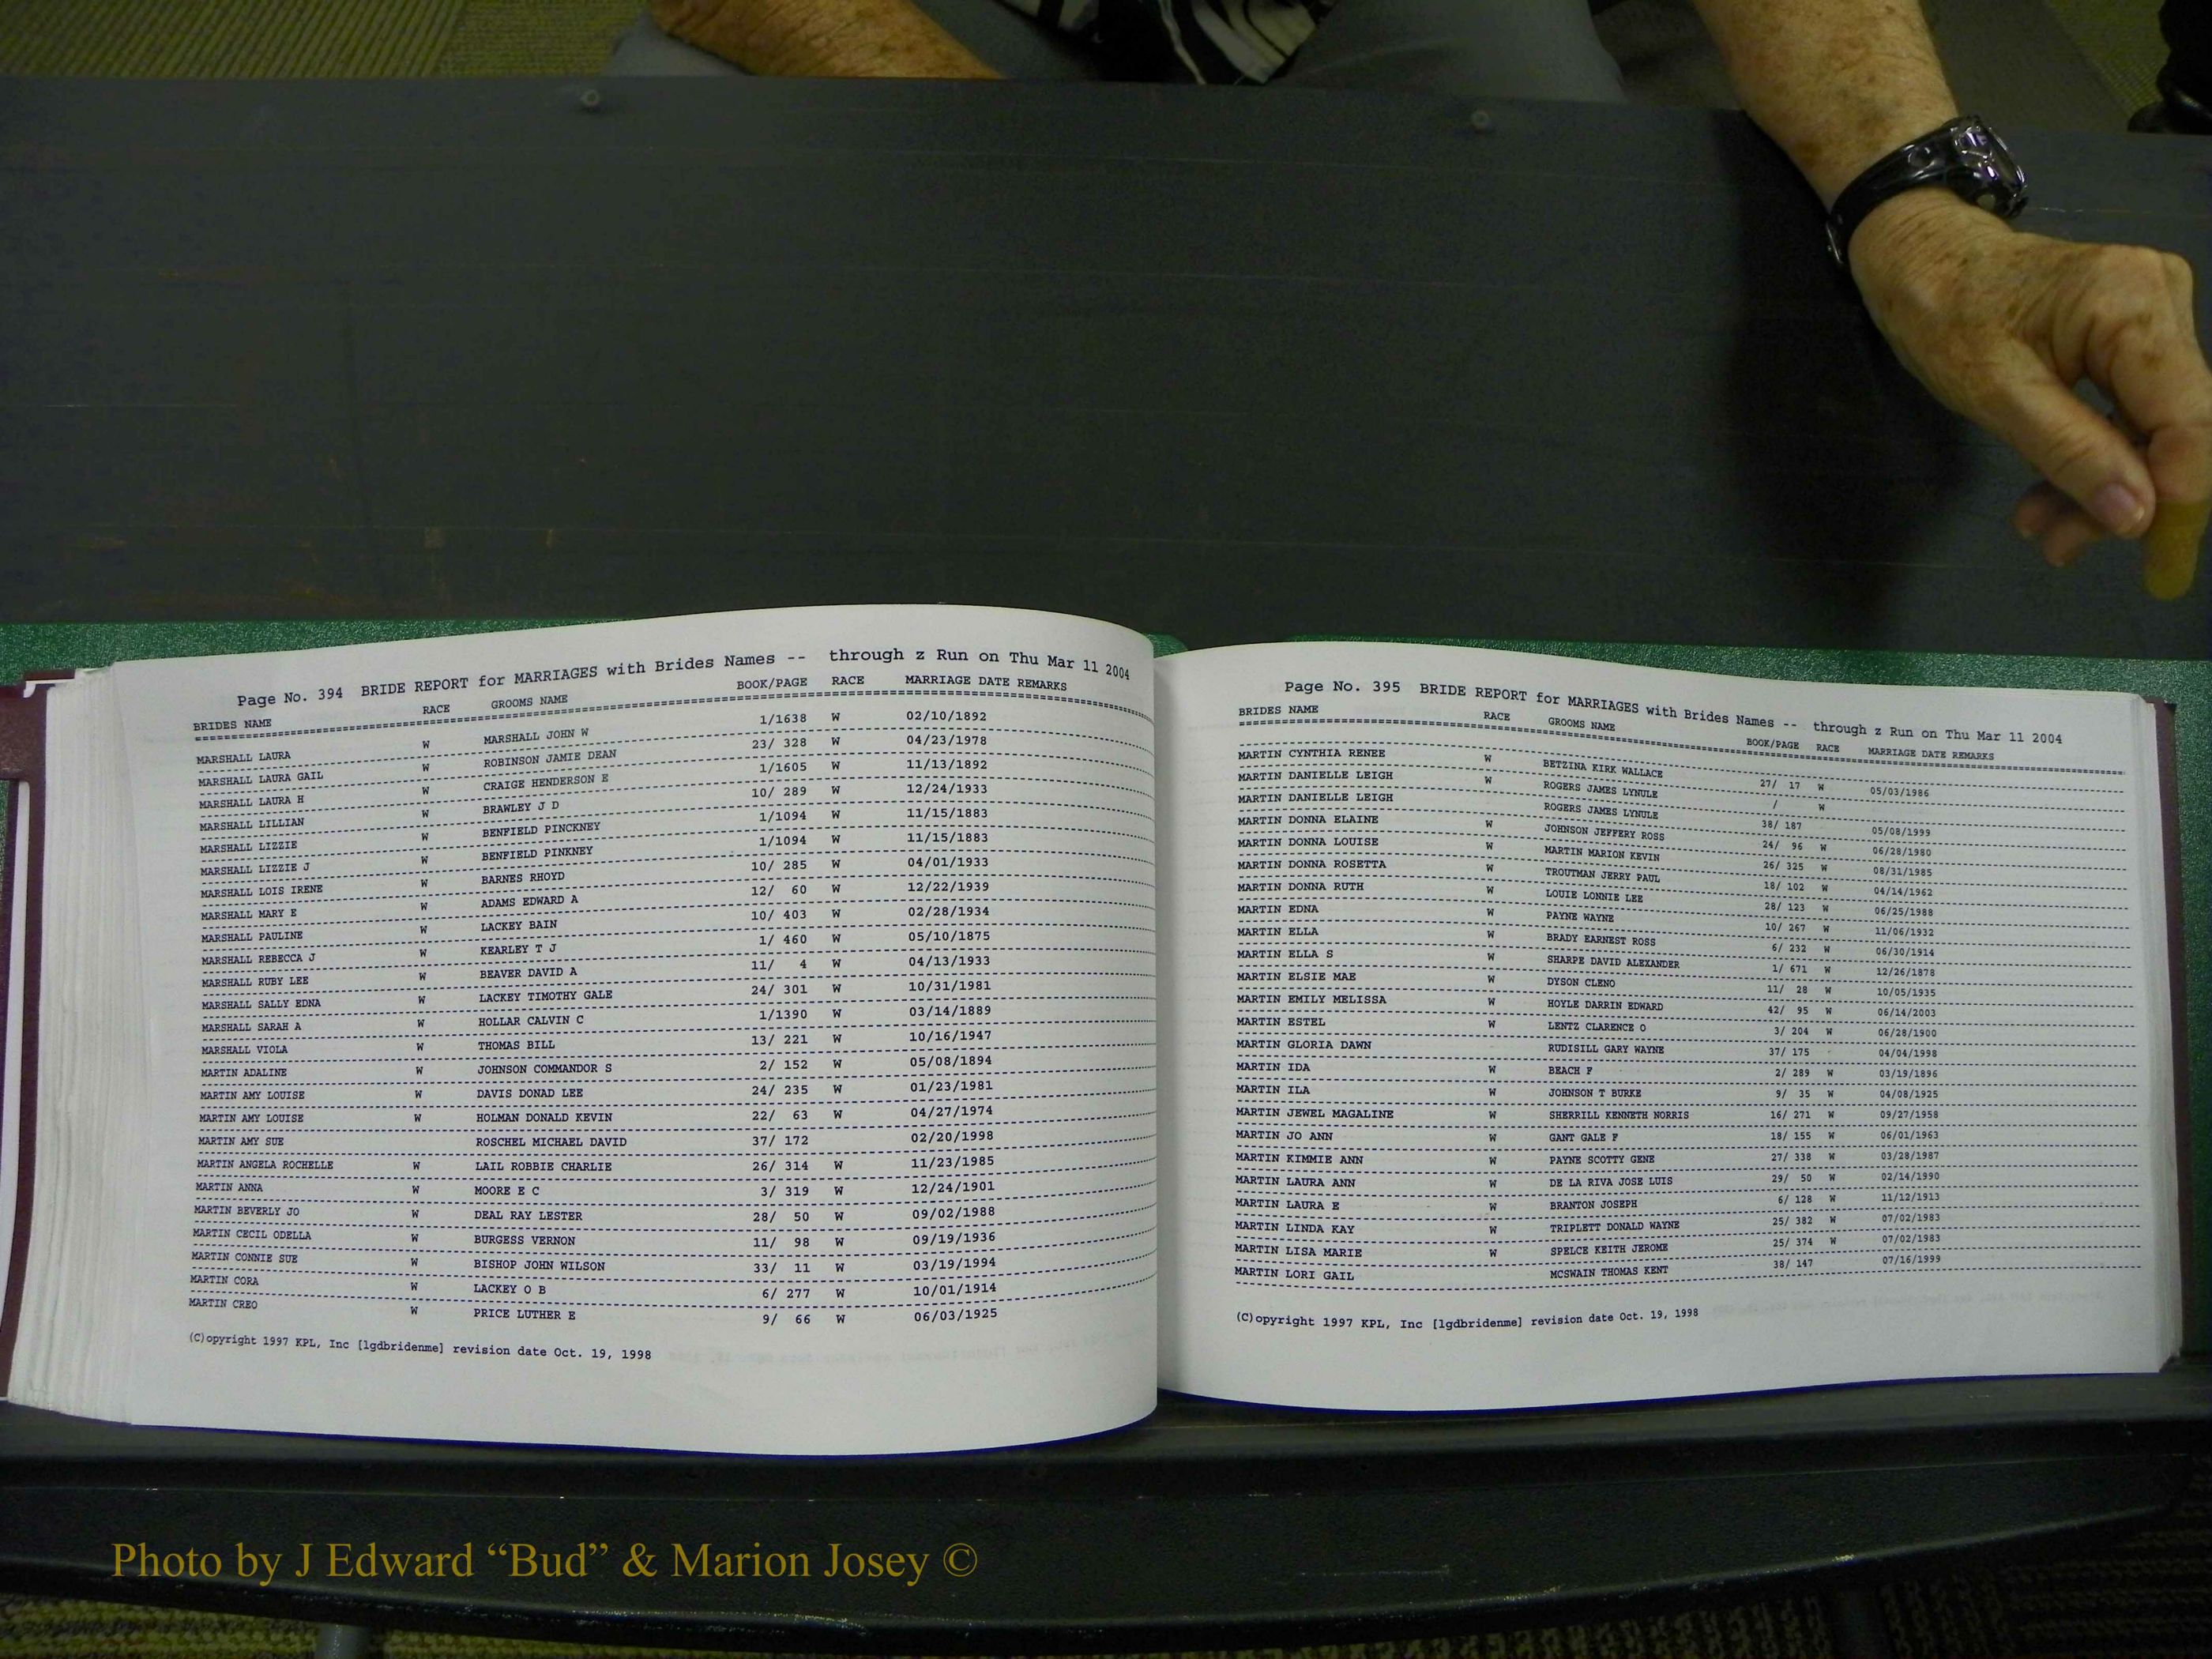 Page No. 394 BRIDE REPORT for MARRIAGES with Brides Names -- through z Run on Thu Mar 11 2004
BRIDES NAME RACE GROOMS NAME BOOK/PAGE RACE MARRIAGE DATE REMARKS
MARSHALL LAURA W MARSHALL JOHN W 1/1638 W 02/10/1892
MARSHALL LAURA GAIL W ROBINSON JAMIE DEAN 23/ 328 W 04/23/1978
MARSHALL LAURA H W CRAIGE HENDERSON E 1/1605 W 11/13/1892
MARSHALL LILLIAN W BRAWLEY J D 10/ 289 W 12/24/1933
MARSHALL LIZZIE W BENFIELD PINCKNEY 1/1094 W 11/15/1883
MARSHALL LIZZIE J W BENFIELD PINKNEY 1/1094 W 11/15/1883
MARSHALL LOIS IRENE W BARNES RHOYD 10/ 285 W 04/01/1933
MARSHALL MARY E W ADAMS EDWARD A 12/ 60 W 12/22/1939
MARSHALL PAULINE W LACKEY BAIN 10/ 403 W 02/28/1934
MARSHALL REBECCA J W KEARLEY T J 1/ 460 W 05/10/1875
MARSHALL RUBY LEE W BEAVER DAVID A 11/ 4 W 04/13/1933
MARSHALL SALLY EDNA W LACKEY TIMOTHY GALE 24/ 301 W 10/31/1981
MARSHALL SARAH A W HOLLAR CALVIN C 1/1390 W 03/14/1889
MARSHALL VIOLA W THOMAS BILL 13/ 221 W 10/16/1947
MARTIN ADALINE W JOHNSON COMMANDOR S 2/ 152 W 05/08/1894
MARTIN AMY LOUISE W DAVIS DONAD LEE 24/ 235 W 01/23/1981
MARTIN AMY LOUISE W HOLMAN DONALD KEVIN 22/ 63 W 04/27/1974
MARTIN AMY SUE ROSCHEL MICHAEL DAVID 37/ 172 02/20/1998
MARTIN ANGELA ROCHELLE W LAIL ROBBIE CHARLIE 26/ 314 W 11/23/1985
MARTIN ANNA W MOORE E C 3/ 319 W 12/24/1901
MARTIN BEVERLY JO W DEAL RAY LESTER 28/ 50 W 09/02/1988
MARTIN CECIL ODELLA W BURGESS VERNON 11/ 98 W 09/19/1936
MARTIN CONNIE SUE W BISHOP JOHN WILSON 33/ 11 W 03/19/1994
MARTIN CORA W LACKEY O B 6/ 277 W 10/01/1914
MARTIN CREO W PRICE LUTHER E 9/ 66 W 06/03/1925
(C)opyright 1997 KPL, Inc [lgdbridenme] revision date Oct. 19, 1998
Page No. 395 BRIDE REPORT for MARRIAGES with Brides Names -- through z Run on Thu Mar 11 2004
BRIDES NAME RACE GROOMS NAME BOOK/PAGE RACE MARRIAGE DATE REMARKS
MARTIN CYNTHIA RENEE W BETZINA KIRK WALLACE 27/ 17 W 05/03/1986
MARTIN DANIELLE LEIGH W ROGERS JAMES LYNULE / W
MARTIN DANIELLE LEIGH ROGERS JAMES LYNULE 38/ 187 05/08/1999
MARTIN DONNA ELAINE W JOHNSON JEFFERY ROSS 24/ 96 W 06/28/1980
MARTIN DONNA LOUISE W MARTIN MARION KEVIN 26/ 325 W 08/31/1985
MARTIN DONNA ROSETTA W TROUTMAN JERRY PAUL 18/ 102 W 04/14/1962
MARTIN DONNA RUTH W LOUIE LONNIE LEE 28/ 123 W 06/25/1988
MARTIN EDNA W PAYNE WAYNE 10/ 267 W 11/06/1932
MARTIN ELLA W BRADY EARNEST ROSS 6/ 232 W 06/30/1914
MARTIN ELLA S W SHARPE DAVID ALEXANDER 1/ 671 W 12/26/1878
MARTIN ELSIE MAE W DYSON CLENO 11/ 28 W 10/05/1935
MARTIN EMILY MELISSA W HOYLE DARRIN EDWARD 42/ 95 W 06/14/2003
MARTIN ESTEL W LENTZ CLARENCE O 3/ 204 W 06/28/1900
MARTIN GLORIA DAWN RUDISILL GARY WAYNE 37/ 175 04/04/1998
MARTIN IDA W BEACH F 2/ 289 W 03/19/1896
MARTIN ILA W JOHNSON T BURKE 9/ 35 W 04/08/1925
MARTIN JEWEL MAGALINE W SHERRILL KENNETH NORRIS 16/ 271 W 09/27/1958
MARTIN JO ANN W GANT GALE F 18/ 155 W 06/01/1963
MARTIN KIMMIE ANN W PAYNE SCOTTY GENE 27/ 338 W 03/28/1987
MARTIN LAURA ANN W DE LA RIVA JOSE LUIS 29/ 50 W 02/14/1990
MARTIN LAURA E W BRANTON JOSEPH 6/ 128 W 11/12/1913
MARTIN LINDA KAY W TRIPLETT DONALD WAYNE 25/ 382 W 07/02/1983
MARTIN LISA MARIE W SPELCE KEITH JEROME 25/ 374 W 07/02/1983
MARTIN LORI GAIL MCSWAIN THOMAS KENT 38/ 147 07/16/1999
(C)opyright 1997 KPL, Inc [lgdbridenme] revision date Oct. 19, 1998
Photo by J Edward “Bud” & Marion Josey ©